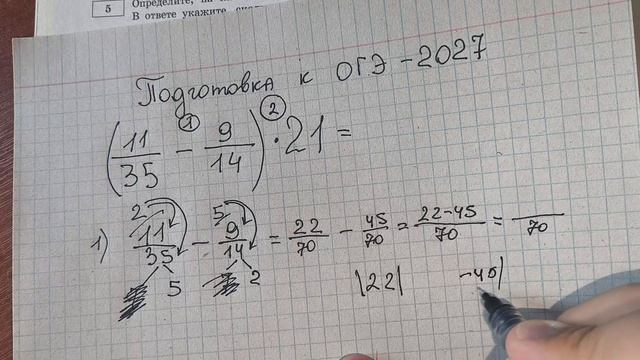 5 Определите,
В ответе укажите
Подготовка к ОГЭ - 2027
(11/35 - 9/14) · 21 =
① ②
1) 11/35 - 9/14 = 22/70 - 45/70 = 22-45/70 = /70
2 5
5 2
|22| -45|